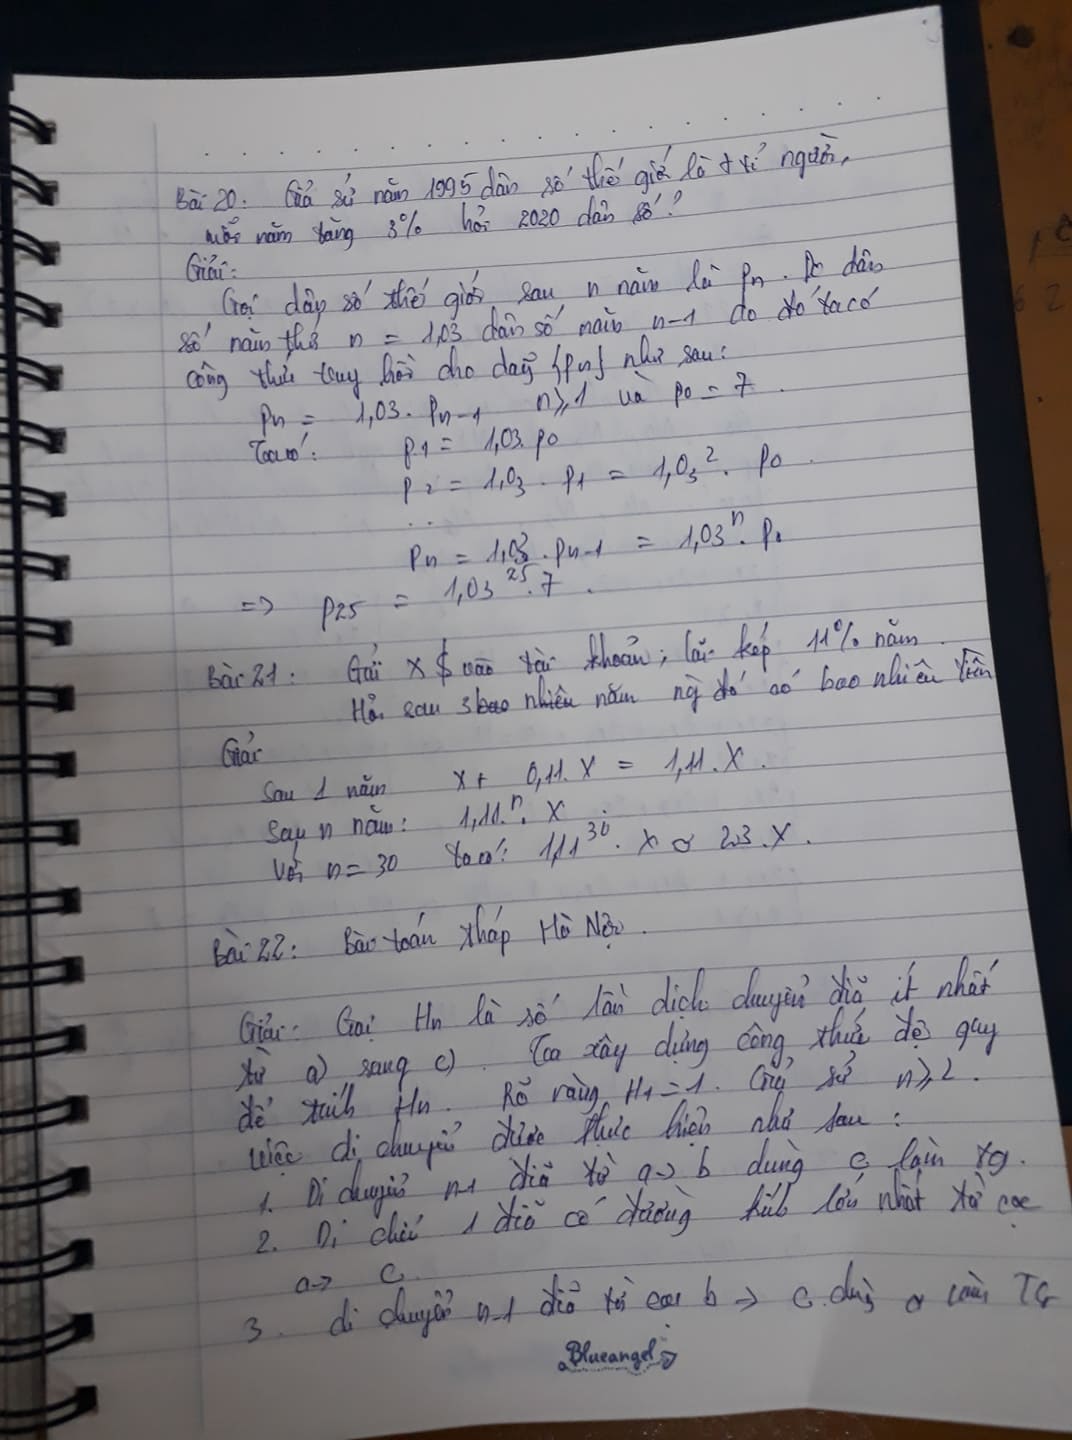 Bài 20: Giả sử năm 1995 dân số thế giới là 7 tỉ người,
mỗi năm tăng 3% hỏi 2020 dân số?
Giải:
Gọi dân số thế giới sau n năm là Pn. Do dân
số năm thứ n = 1,03 dân số năm n-1 do đó ta có
công thức truy hồi cho dãy {Pn} như sau:
Pn = 1,03. Pn-1 n≥1 và P0 = 7.
Ta có: P1 = 1,03 P0
P2 = 1,03. P1 = 1,03². P0.
...
Pn = 1,03. Pn-1 = 1,03ⁿ. P0
=> P25 = 1,03²⁵.7.
Bài 21: Gửi X $ vào tài khoản, lãi kép 11% năm.
Hỏi sau 3 năm ng đó có bao nhiêu tiền
Giải
Sau 1 năm X + 0,11. X = 1,11. X.
Sau n năm: 1,11ⁿ. X
Với n = 30 ta có: 1,11³⁰. X 23. X.
Bài 22: Bài toán tháp Hà Nội.
Giải: Gọi Hn là số lần dịch chuyển đĩa ít nhất
từ a) sang c). Ta xây dựng công thức đệ quy
để tính Hn. Rõ ràng H1 = 1. Giả sử n≥2.
việc di chuyển được thực hiện như sau:
1. Di chuyển n-1 đĩa từ a -> b dùng c làm tg.
2. Di chuyển 1 đĩa có đường kính lớn nhất từ cọc
a -> c
3. di chuyển n-1 đĩa từ cọc b -> c dùng a làm TG
Blueangel